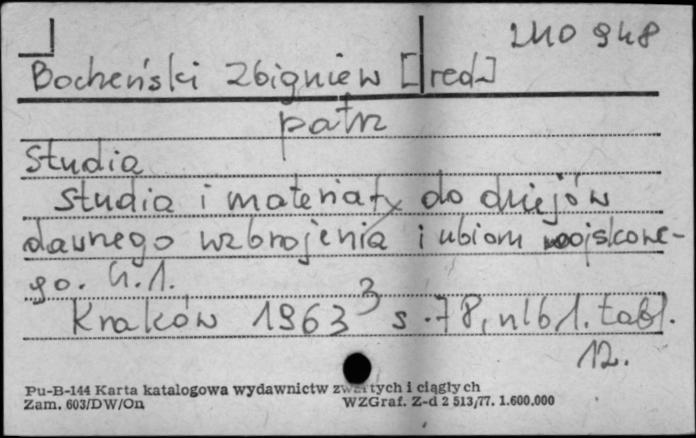 240 948
Bocheński Zbigniew [red.]
patrz
Studia
Studia i materiały do dziejów
dawnego uzbrojenia i ubioru wojskowe-
go. Cz.1.
Kraków 1963 3 s.78, nlb 1. tabl.
12.
Pu-B-144 Karta katalogowa wydawnictw zwartych i ciągłych
Zam. 603/DW/On WZGraf. Z-d 2 513/77. 1.600.000